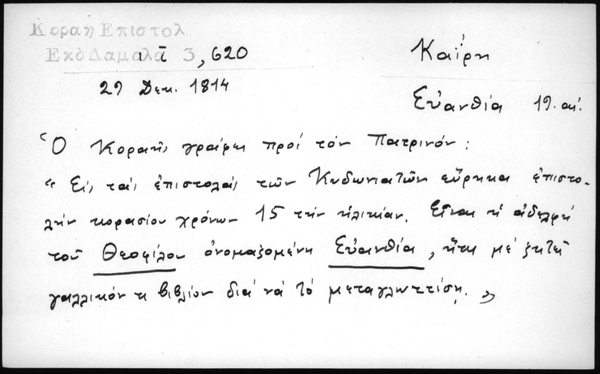 Κοραη Επιστολ
Εκδ Δαμαλά 3, 620
29 Δεκ. 1814
Καΐρη
Εὐανθία 19. αἰ.
Ὁ Κοραῆς γράφει πρὸς τὸν Πατρινόν:
« Εἰς τὰς ἐπιστολὰς τῶν Κυδωνιατῶν εὕρηκα ἐπιστο-
λὴν κορασίου χρόνων 15 τὴν ἡλικίαν. Εἶναι ἡ ἀδελφὴ
τοῦ Θεοφίλου ὀνομαζομένη Εὐανθία, ἥτις μὲ ζητεῖ
γαλλικόν τι βιβλίον διὰ νὰ τὸ μεταγλωττίσῃ. »